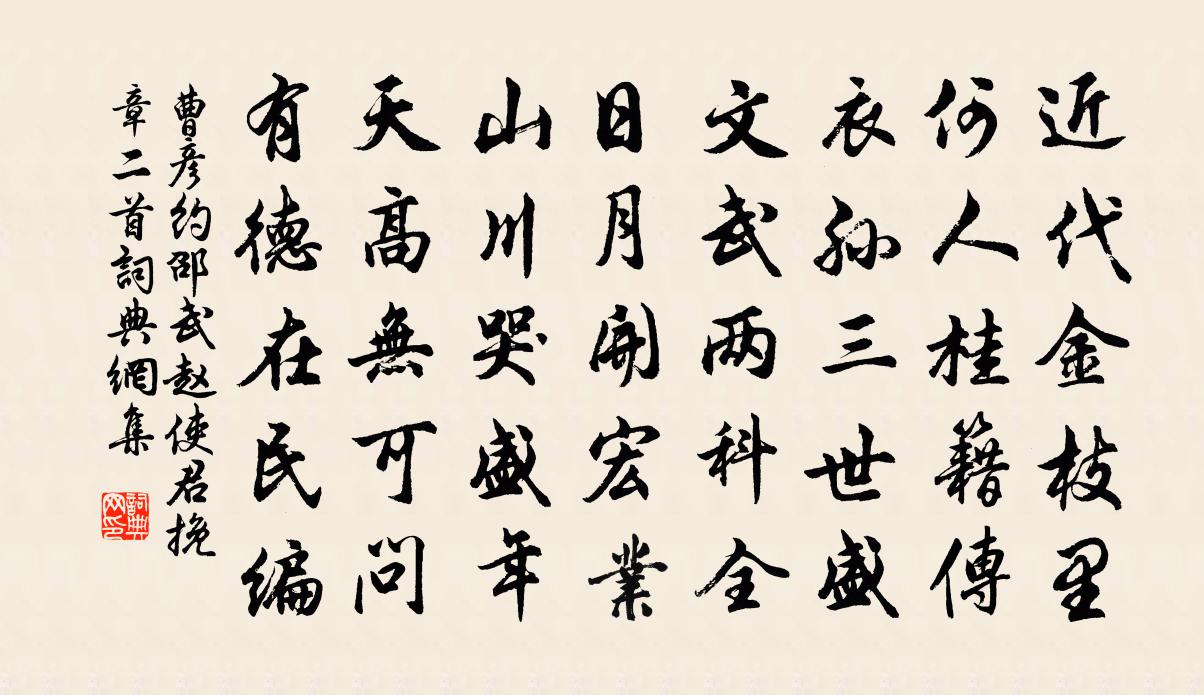 近代金枝里
何人桂籍傳
衣孙三世盛
文武两科全
日月開宏業
山川哭盛年
天高無可問
有德在民编
曹彦約邵武赵使君挽
章二首詞典網集
詞典
网印